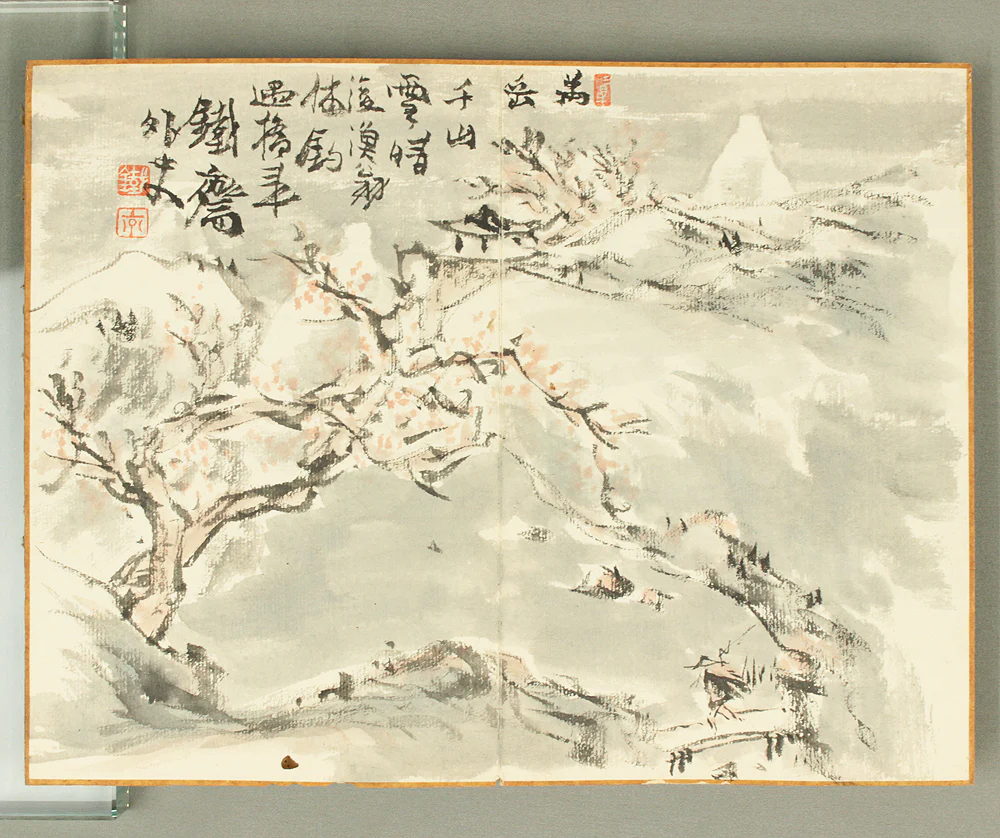 萬
岳
千山
雪晴
後漁翁
休釣
過橋来
鐵齋
外史
鐵